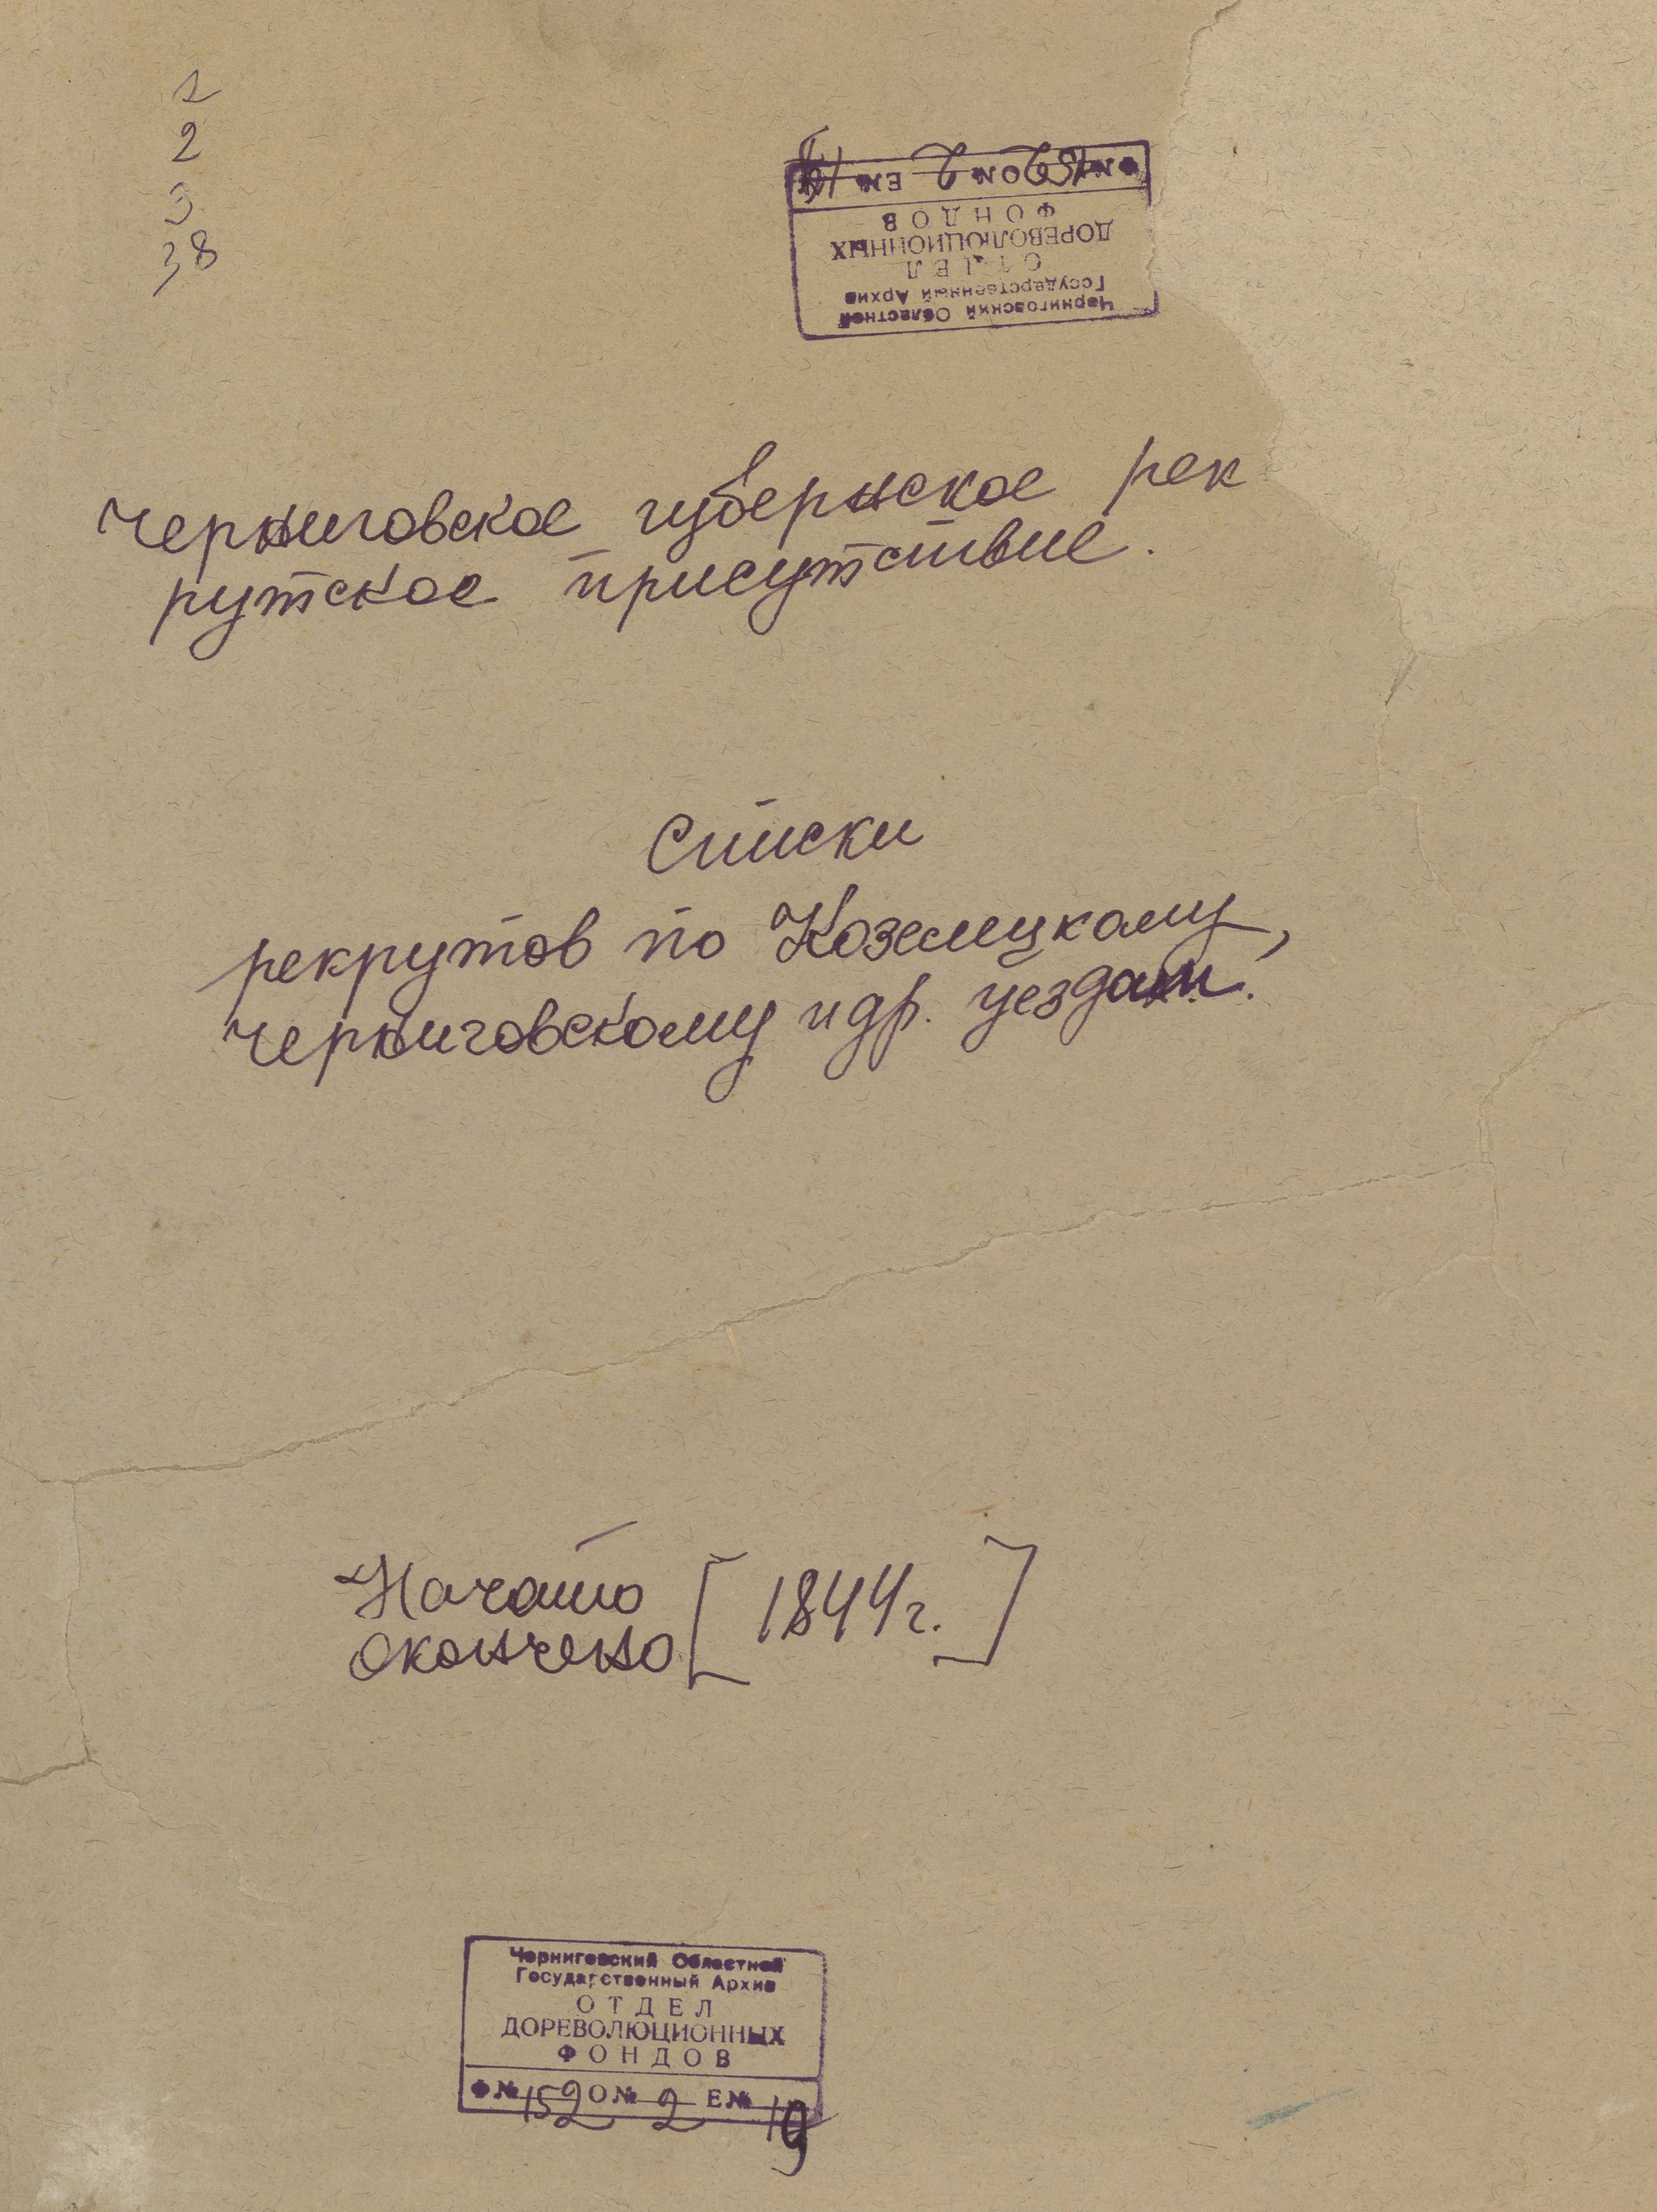 1
2
3
38
Черниговский Областной
Государственный Архив
ОТДЕЛ
ДОРЕВОЛЮЦИОННЫХ
ФОНДОВ
Ф№ 152 О№ 2 Е№
Черниговское губернское рек
рутское присутствие.
Списки
рекрутов по Козелецкому,
Черниговскому и др. уездам.
Начато
Окончено [1844 г.]
Черниговский Областной
Государственный Архив
ОТДЕЛ
ДОРЕВОЛЮЦИОННЫХ
ФОНДОВ
Ф№ 152 О№ 2 Е№ 19